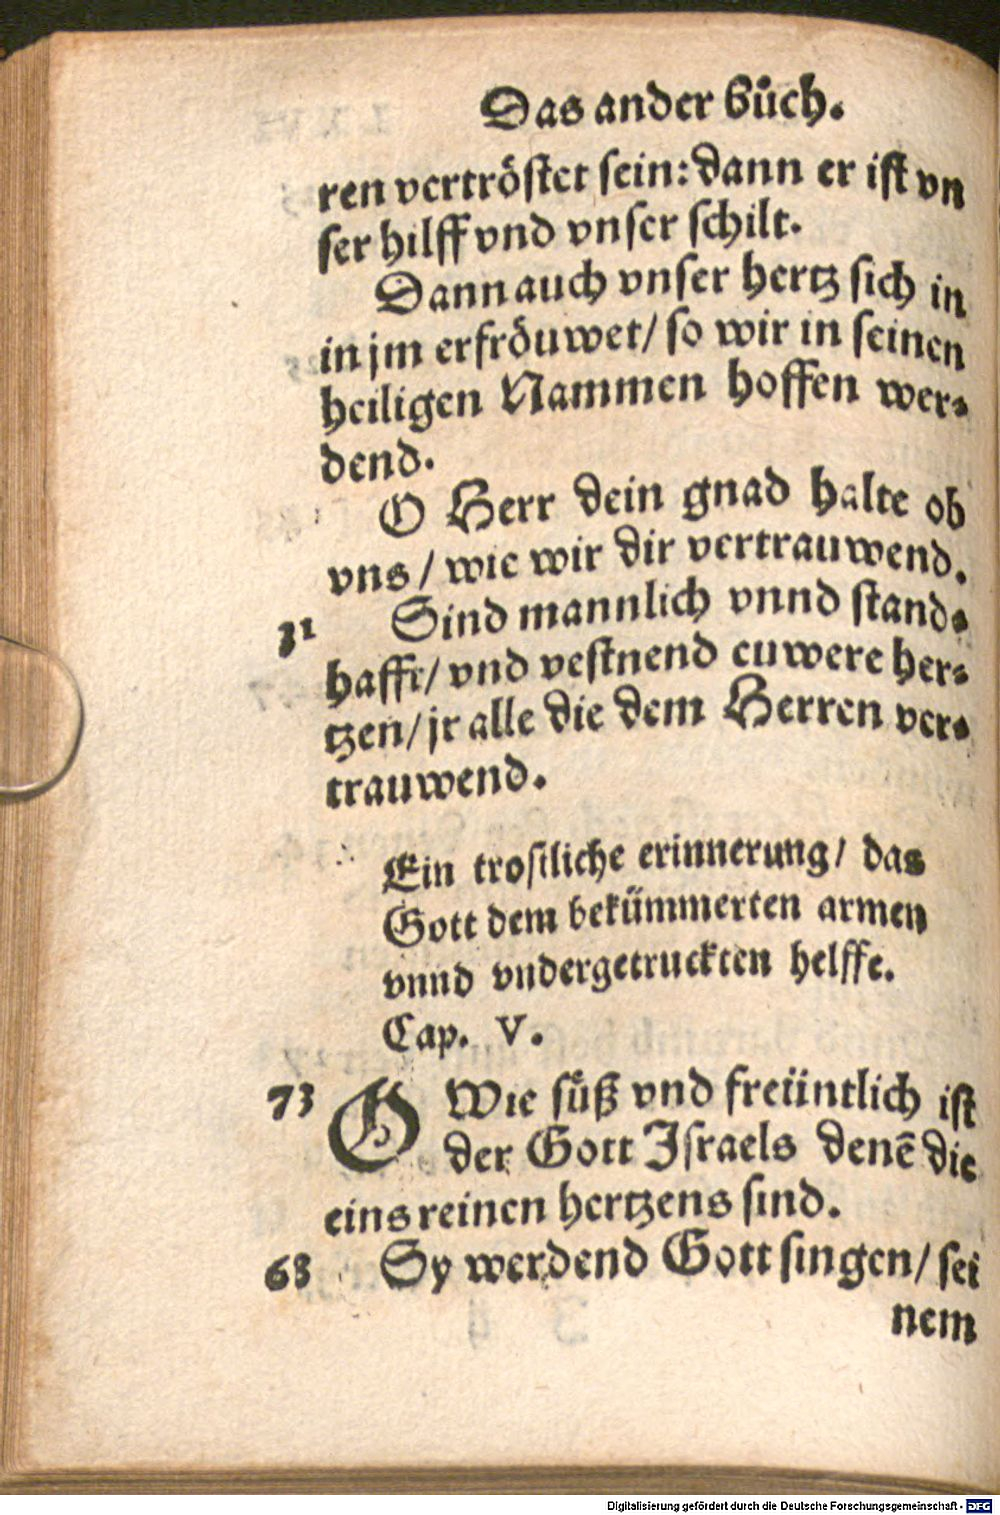 Das ander bůch.
ren vertröstet sein: dann er ist vn
ser hilff vnd vnser schilt.
Dann auch vnser hertz sich in
in jm erfröuwet/ so wir in seinen
heiligen Nammen hoffen wer-
dend.
O Herr dein gnad halte ob
vns/ wie wir dir vertrauwend.
31 Sind mannlich vnnd stand-
hafft/ vnd vestnend euwere her-
tzen/ jr alle die dem Herren ver-
trauwend.
Ein trostliche erinnerung/ das
Gott dem bekümmerten armen
vnnd vndergetruckten helffe.
Cap. V.
73 O Wie süß vnd freüntlich ist
der Gott Israels denē die
eins reinen hertzens sind.
68 Sy werdend Gott singen/ sei
nem
Digitalisierung gefördert durch die Deutsche Forschungsgemeinschaft - DFG